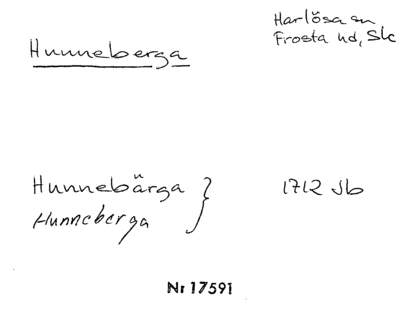 Hunneberga
Harlösa sn
Frosta hd, Sk
Hunnebärga
Hunneberga
} 1712 Jb
Nr 17591